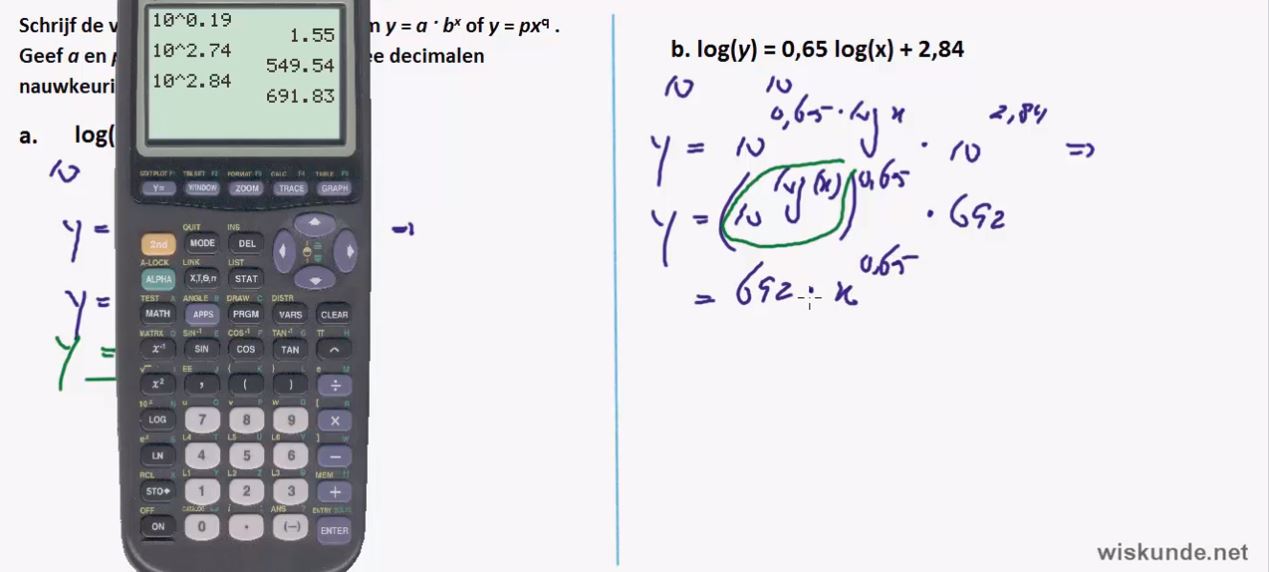 Schrijf de v
n y = a · bˣ of y = pxᑫ .
Geef a en p
ee decimalen
nauwkeuri
a. log(
10
y =
y =
y =
10^0.19
1.55
10^2.74
549.54
10^2.84
691.83
STATPLOT F1 TBLSET F2 FORMAT F3 CALC F4 TABLE F5
Y= WINDOW ZOOM TRACE GRAPH
QUIT INS
2nd MODE DEL
A-LOCK LINK LIST
ALPHA X,T,θ,n STAT
TEST A ANGLE B DRAW C DISTR
MATH APPS PRGM VARS CLEAR
MATRX D SIN⁻¹ E COS⁻¹ F TAN⁻¹ G π H
x⁻¹ SIN COS TAN ^
√ I EE J { K } L e M
x² , ( ) ÷
10ˣ N u O v P w Q [ R
LOG 7 8 9 ×
eˣ S L4 T L5 U L6 V ] W
LN 4 5 6 −
RCL X L1 Y L2 Z L3 θ MEM "
STO➔ 1 2 3 +
OFF CATALOG i : ANS ? ENTRY SOLVE
ON 0 . (−) ENTER
b. log(y) = 0,65 log(x) + 2,84
10 10
y = 10^0,65 · log x · 10^2,84 ⇒
y = (10^log(x))^0,65 · 692
= 692 · x^0,65
wiskunde.net